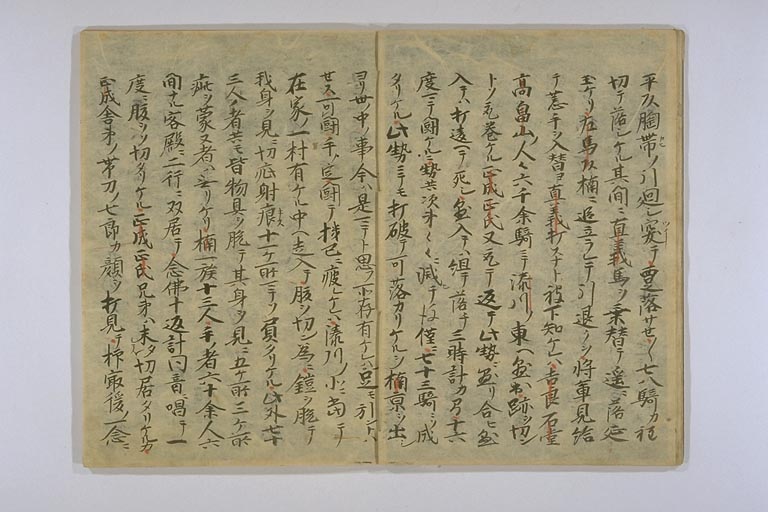 平頸胸帯ノ引廻シ突テ更落サセ〱七八騎カ程
切テ落シケル其間ニ直義馬ヲ乗替テ遥ニ落延
玉ケリ左馬頭楠ニ追立ラレテ引退クヲ将軍見給
テ荒手ヲ入替ヨ直義打スナト被下知ケレハ吉良石堂
高畠山ノ人々六千余騎ニテ湊川ノ東ヘ歩出跡ヲ切ン
トソ取巻ケル正成正氏又取テ返テ此勢ニ歩リ合ヒ歩
入テハ打違ヘテ死シ歩入テハ組テ落チ三時計カ間十六
度マテ闘ケルニ其勢次第〱ニ減テ後ハ僅ニ七十三騎ニソ成
タリケル此勢ニテモ打破テ可落カリケルヲ楠京ヲ出シ
ヨリ世ノ中ノ事今ハ是マテト思フ所存有ケレハ一足モ引ントハ
セス可闘手ヲ定闘テ機已ニ疲ケレハ湊川ノ北ニ当テ
在家ノ一村有ケル中ヘ走入テ腹ヲ切ン為ニ鎧ヲ脱テ
我身ヲ見ニ切疵射痕十一ケ所マテソ負タリケル此外七十
三人ノ者共モ皆物具ヲ脱テ其身ヲ見ニ五ケ所三ケ所
疵ヲ蒙ヌ者ハ無リケリ楠一族十三人手ノ者六十余人六
間ナル客殿ニ二行ニ双居テ念佛十返計同音ニ唱テ一
度ニ腹ヲソ切タリケル正成正氏兄弟ハ末タ切居タリケルカ
正成舎弟ノ帯刀ノ七郎カ顔ヲ打見テ抑最後ノ一念ニ